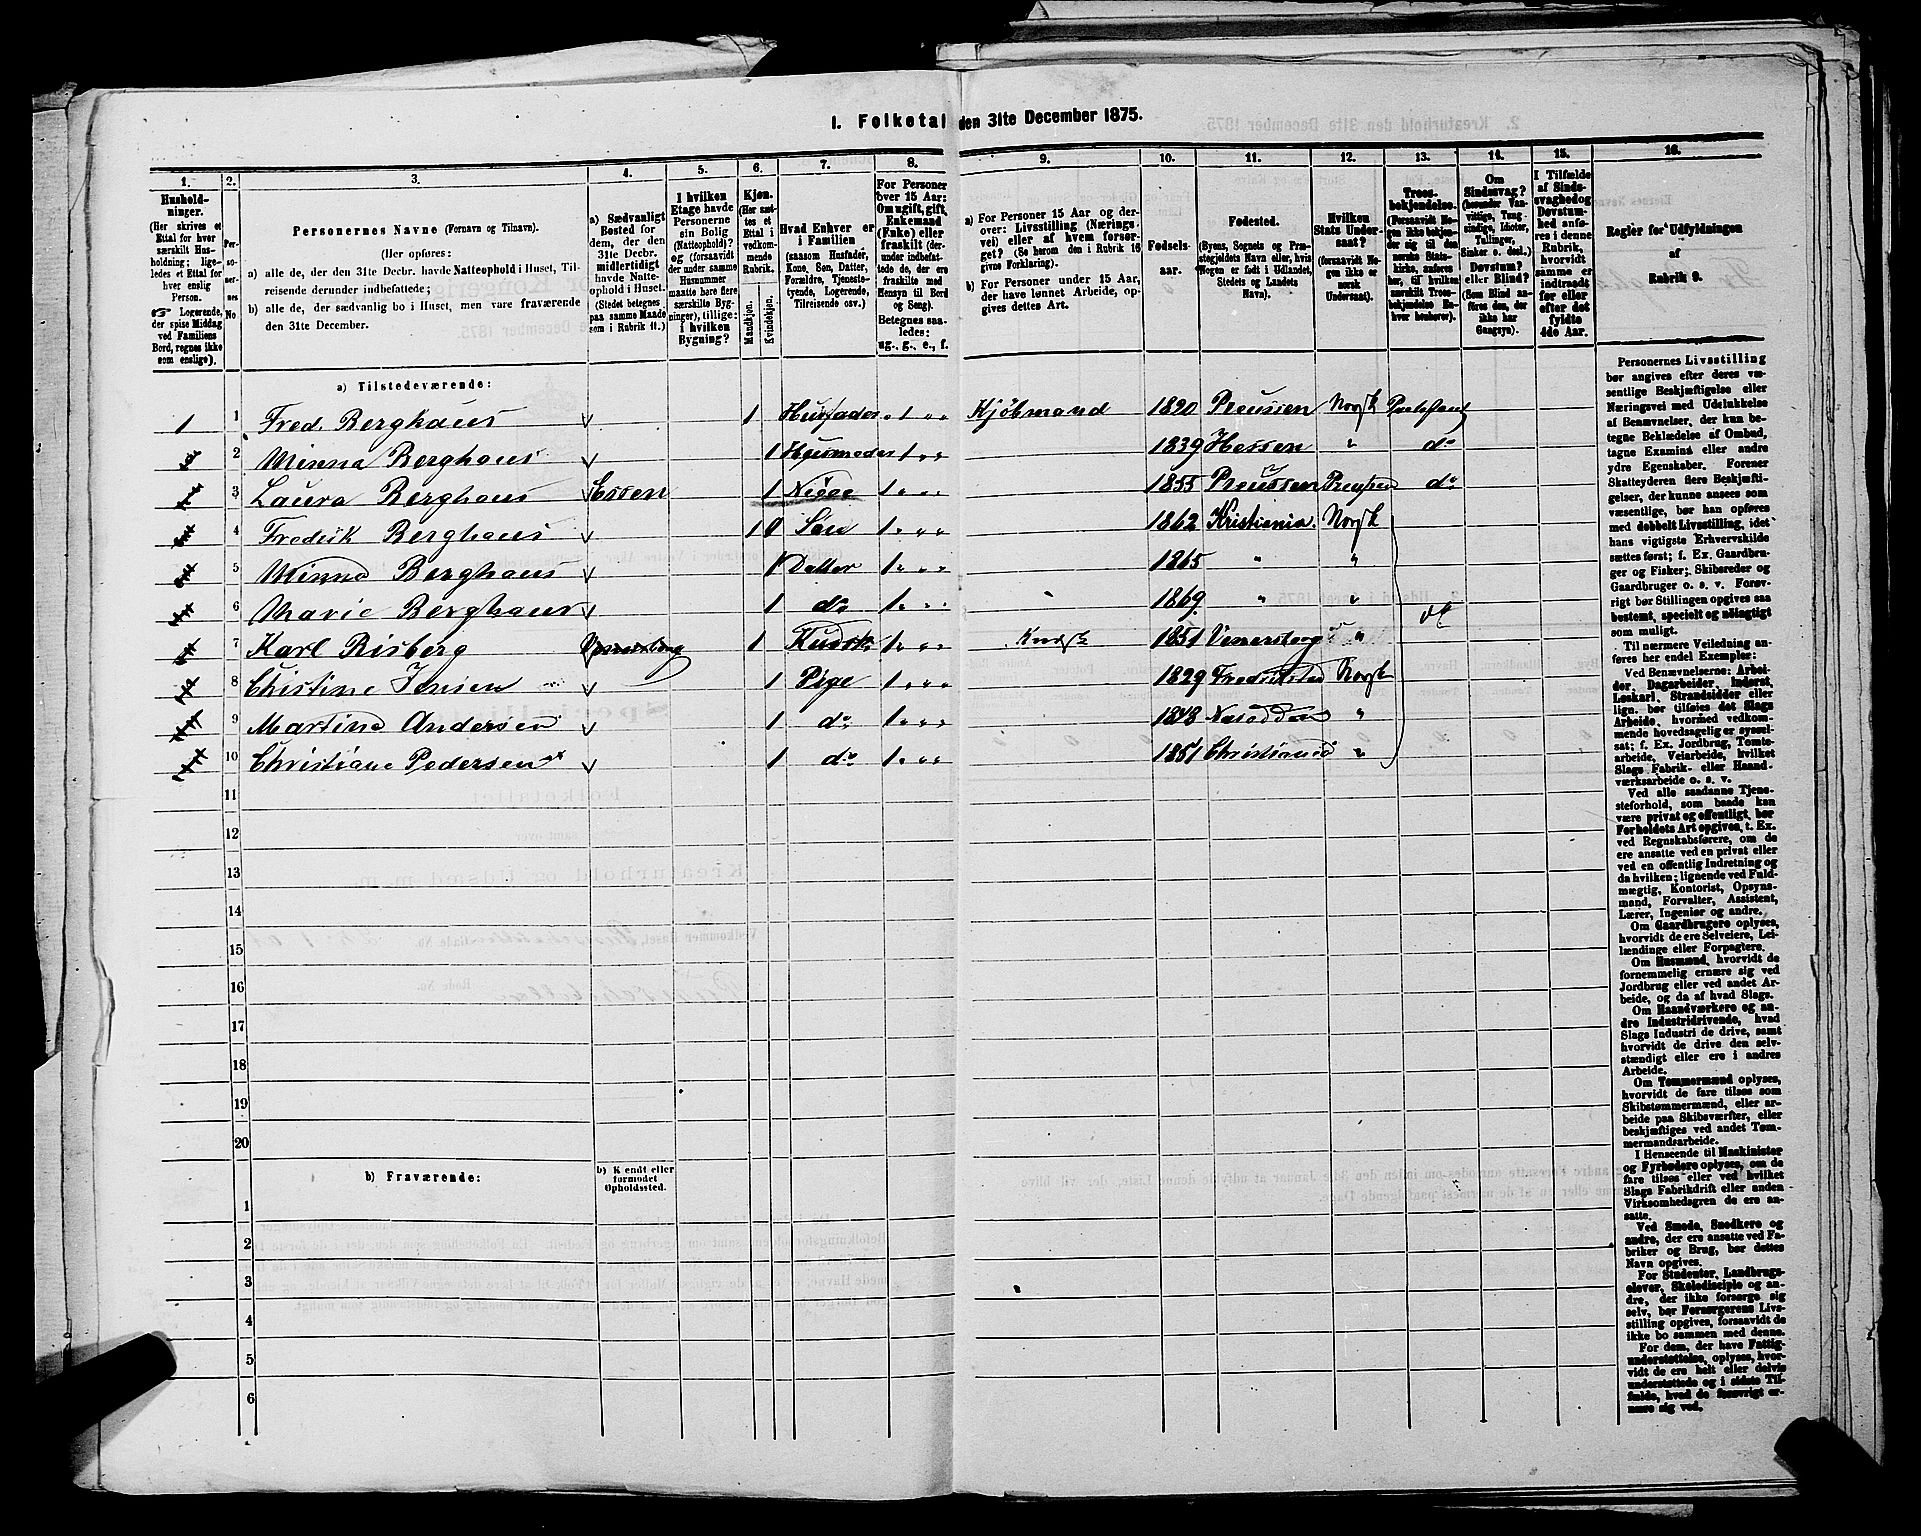 1. Folketal den 31te December 1875.
1. 2. 3. 4. 5. 6. 7. 8. 9. 10. 11. 12. 13. 14. 15. 16.
Husholdninger.
(Her skrives et
Ettal for hver
særskilt Husholdning;
ligeledes et Ettal for
hver enslig
Person.
Logerende,
der spise Middag
ved Familiens
Bord, regnes ikke
som enslige).
Personernes No
Personernes Navne (Fornavn og Tilnavn).
(Her opføres:
a) alle de, der den 31te Decbr. havde Natteophold i Huset, Tilreisende derunder indbefattede;
b) alle de, der sædvanlig bo i Huset, men vare fraværende
den 31te December.
a) Sædvanligt
Bosted for
dem, der den
31te Decbr.
midlertidigt
havde Natteophold i Huset.
(Stedet betegnes
paa samme Maade
som i Rubrik 11.)
I hvilken
Etage havde
Personerne
ein Bolig
(Natteophold)?
og (forsaavidt
der under samme
Husnummer
maatte høre flere
særskilte Bygninger), tillige:
i hvilken
Bygning?
Kjøn.
(Her sættes et
Ettal i
vedkommende
Rubrik.)
Mandkjøn.
Kvindekjøn.
Hvad Enhver er
i Familien
(saasom Husfader,
Kone, Søn, Datter,
Forældre, Tjenestetyende, Logerende,
Tilreisende osv.)
For Personer
over 15 Aar:
Om ugift, gift,
Enkemand
(Enke) eller
fraskilt (derunder indbefattede de, der ere
fraskilte med
Hensyn til Bord
og Seng).
Betegnes saaledes:
ug., g., e., f.
a) For Personer 15 Aar og derover: Livsstilling (Næringsvei) eller af hvem forsørget? (Se herom den i Rubrik 16
givne Forklaring).
b) For Personer under 15 Aar,
der have lønnet Arbeide, opgives dettes Art.
Fødselsaar.
Fødested.
(Byens, Sognets og Præstegjeldets Navn eller, hvis
Nogen er født i Udlandet,
Stedets og Landets
Navn).
Hvilken
Stats Undersaat?
(forsaavidt Nogen ikke er
norsk
Undersaat).
Troesbekjendelse.
(Forsaavidt Nogen ikke bekjender sig til den
norske Statskirke, anføres
her, til hvilken
norskilt Troesbekjendelse Enhver henhører).
Om
Sindssvag?
(herunder Vanvittige, Tungsindige, Idioter,
Tullinger,
Sinker o. desl.)
Døvstum?
eller Blind?
(Som Blind anføres den, der
ikke har
Gangsyn).
I Tilfælde
af Sindssvaghed og
Døvstumhed anføres i denne
Rubrik,
hvorvidt
samme er
indtraadt
før eller
efter det
fyldte
4de Aar.
Regler for Udfyldningen
af
Rubrik 9.
a) Tilstedeværende:
1 1 Fred. Berghaus 1 Husfader 1 Kjøbmand 1820 Preussen Norsk
2 Minna Berghaus 1 Husmoder 1 1839 Hessen " do
3 Laura Berghaus Essen 1 Niece 1 1855 Preussen Preussen do
4 Fredrik Berghaus 1 Søn 1 1862 Kristiania Norsk
5 Minna Berghaus 1 Datter 1 1865 " "
6 Marie Berghaus 1 do 1 1869 " "
7 Karl Risberg Venersborg 1 Kudsk 1 Kudsk 1851 Venersborg "
8 Christine Jensen 1 Pige 1 1829 Fredrikstad Norsk
9 Martine Andersen 1 do 1 1848 Nesodden "
10 Christiane Pedersen 1 do 1 1851 Christiania "
11
12
13
14
15
16
17
18
19
20
b) Fraværende: b) Kjendt eller
formodet
Opholdssted.
1
2
3
4
5
6
Personernes Livsstilling
bør angives efter deres væsentlige Beskjæftigelse eller
Næringsvei med Udelukkelse
af Benævnelser, der kun betegne Beklædelse af Ombud,
tagne Examina eller andre
ydre Egenskaber. Forener
Skatteyderen flere Beskjæftigelser, der kunne ansees som
væsentlige, bør han opføres
med dobbelt Livsstilling, idet
hans vigtigste Erhvervskilde
sættes først; f. Ex. Gaardbruger og Fisker; Skibsreder og
Gaardbruger o. s. v. Forøvrigt bør Stillingen opgives saa
bestemt, specielt og nøiagtigt
som muligt.
Til nærmere Veiledning anføres her endel Exempler:
Ved Benævnelserne: Arbeider, Dagarbeider, Inderst,
Løskarl, Strandsidder eller
lign. bør tilføies det Slags
Arbeide, hvormed vedkommende hovedsagelig er sysselsat; f. Ex. Jordbrug, Tømtearbeide, Veiarbeide, hvilket
Slags Fabrik- eller Haandværksarbeide o. s. v.
Ved alle saadanne Tjenesteforhold, som baade kan
være privat og offentligt, bør
Forholdets Art opgives, t. Ex.
ved Regnskabsførere, om de
ere ansatte ved en privat eller
ved en offentlig Indretning og
da hvilken; lignende ved Fuldmægtig, Kontorist, Opsynsmand, Forvalter, Assistent,
Lærer, Ingeniør og andre.
Om Gaardbrugere oplyses,
hvorvidt de ere Selveiere, Leilændinge eller Forpagtere.
Om Husmænd, hvorvidt de
fornemmelig ernære sig ved
Jordbrug eller ved andet Arbeide, og da af hvad Slags.
Om Haandværkere og andre Industridrivende, hvad
Slags Industri de drive, samt
hvorvidt de drive den selvstændigt eller ere i andres
Arbeide.
Om Tømmermænd oplyses,
hvorvidt de fare tilsøs som
Skibstømmermænd, eller arbeide paa Skibsværfter, eller
beskjæftiges ved andet Tømmermandsarbeide.
I Henseende til Maskinister
og Fyrbødere oplyses, om de
fare tilsøs eller ved hvilket
Slags Fabrikdrift eller anden
Virksomhedsgren de ere ansatte.
Ved Smede, Snedkere og
andre, der ere ansatte ved Fabriker og Brug, bør dettes
Navn opgives.
For Studenter, Landbrugselever, Skoledisciple og andre, der ikke forsørge sig
selv, bør Forsørgerens Livsstilling opgives, forsaavidt de
ikke bo sammen med denne.
For dem, der have Fattigunderstøttelse, oplyses, hvorvidt de ere helt eller delvis
understøttede og i sidste Tilfælde, hvad de forøvrigt ernære sig ved.